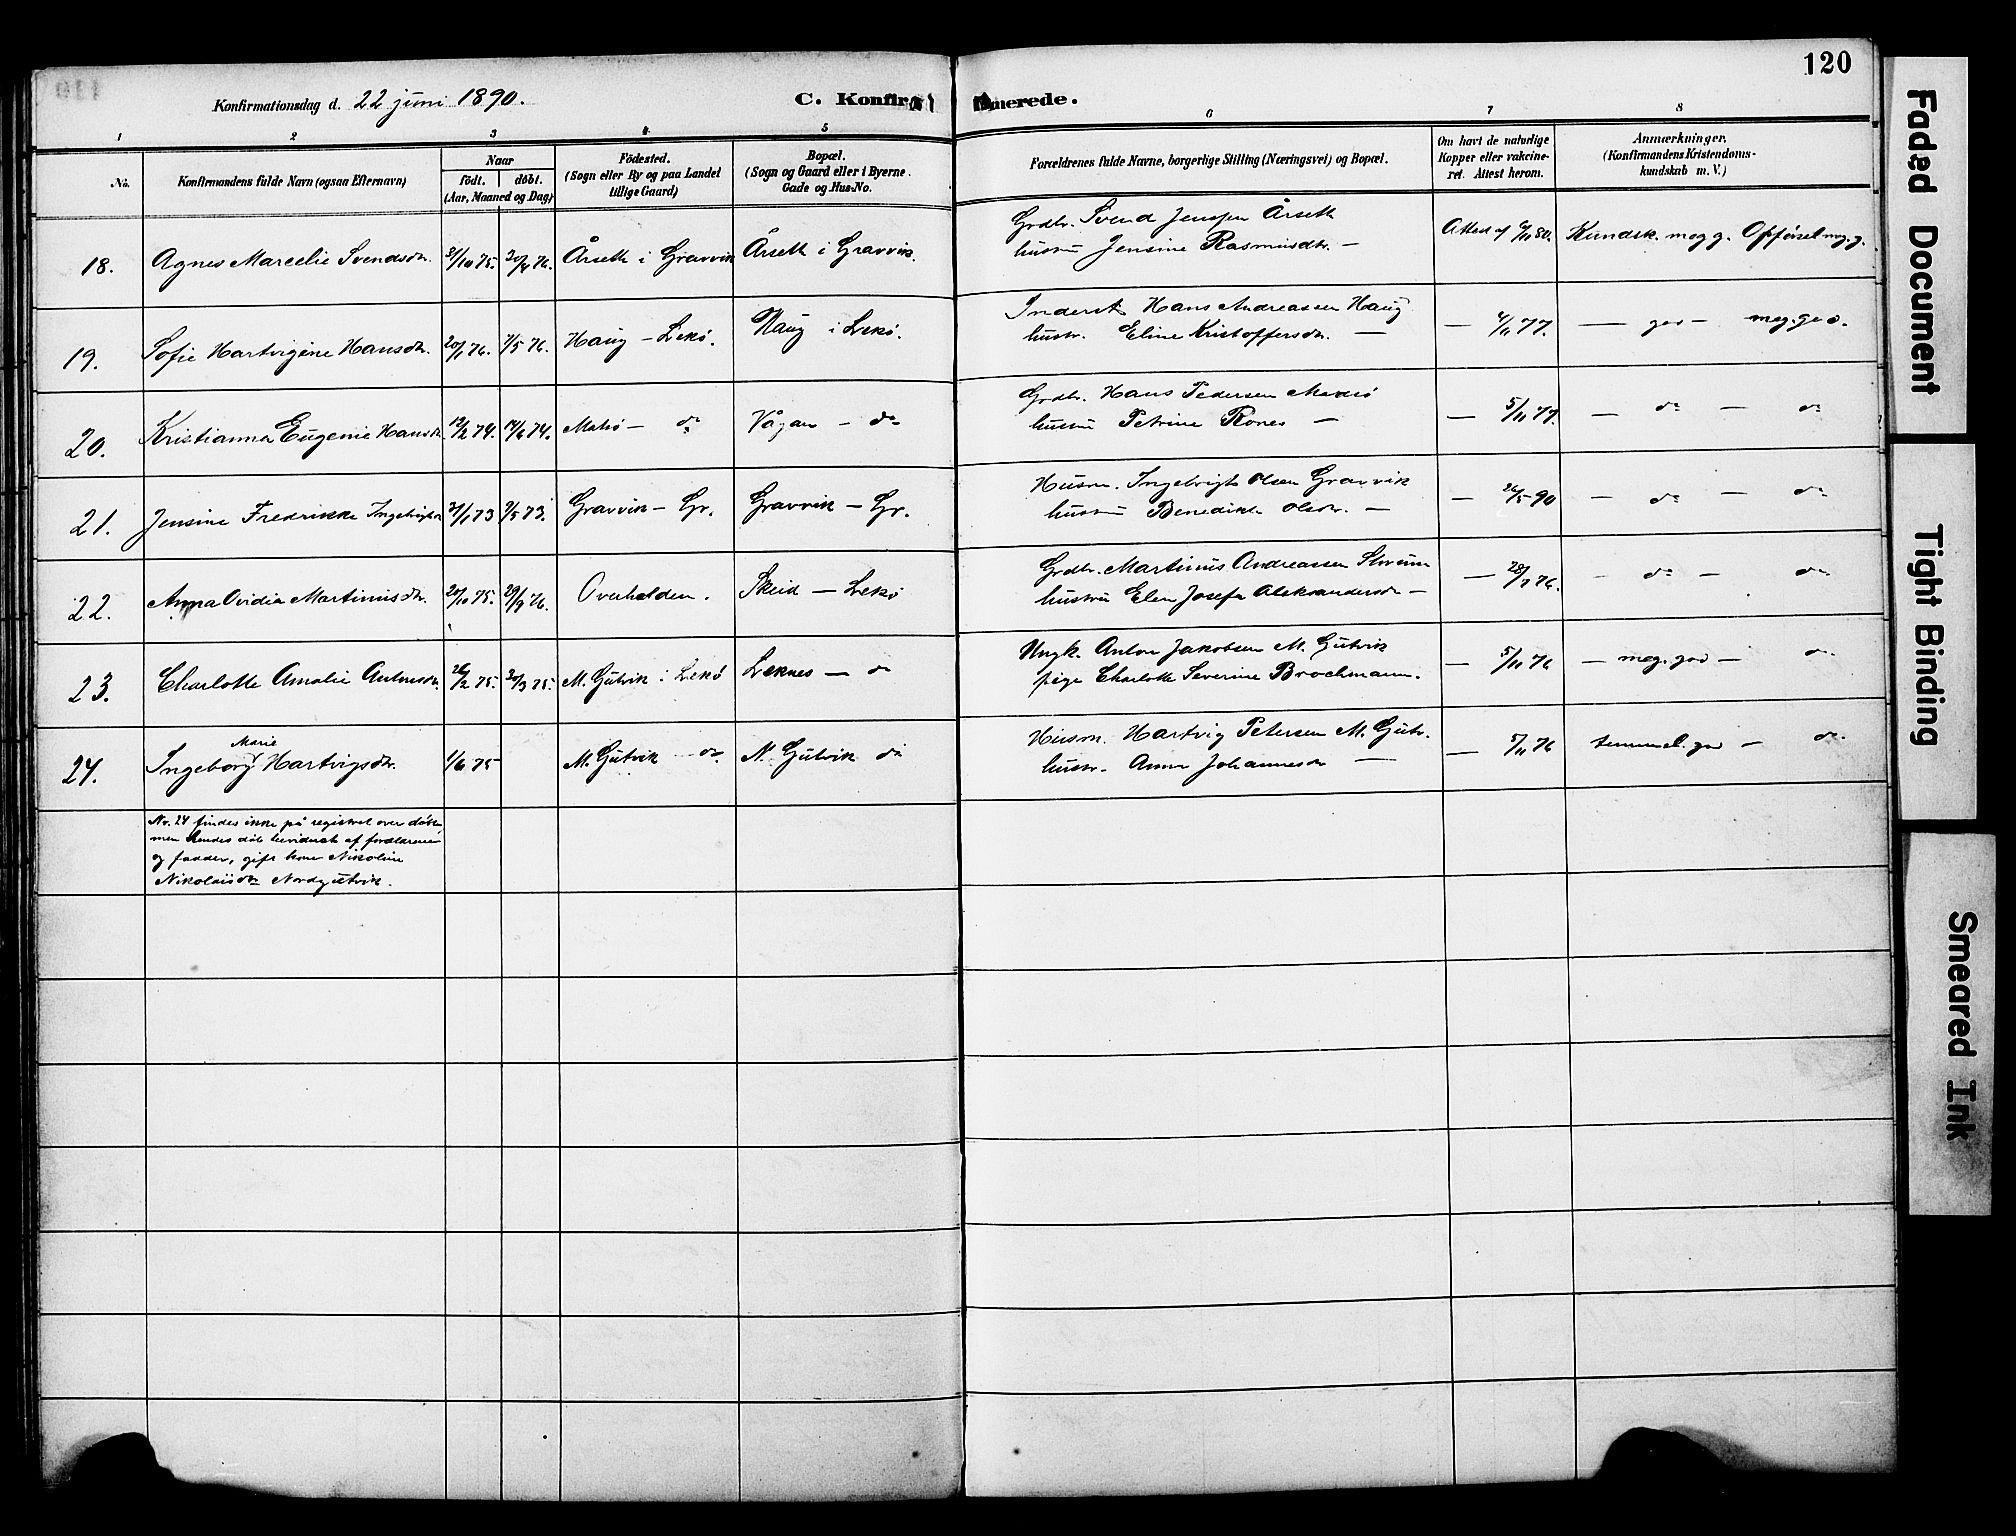 120
Konfirmationsdag d. 22 juni 1890.
C. Konfirmerede.
1 2 3 4 5 6 7 8
No.
Konfirmandens fulde Navn (ogsaa Efternavn)
Naar
födt. döbt.
(Aar, Maaned og Dag)
Födested.
(Sogn eller By og paa Landet
tillige Gaard)
Bopæl.
(Sogn og Gaard eller i Byerne
Gade og Hus-No.
Forældrenes fulde Navne, borgerlige Stilling (Næringsvei) og Bopæl.
Om havt de naturlige
Kopper eller vakcine-
ret. Attest herom.
Anmærkninger.
(Konfirmandens Kristendoms-
kundskab m. V.)
18. Agnes Marcelie Svendsdtr. 31/10 75. 20/4 76. Årseth i Gravvik Årseth i Gravvik.
Grdbr. Svend Jenssen Årseth
hustru Jensine Rasmusdtr. —
Attest af 80. Kundsk. meg g. Opförsel meg g.
19. Sofie Hartvigine Hansdtr. 20/1 76. 7/5 76. Haug — Lekö. Haug i Lekö.
Inderst Hans Andreassen Haug
hustr. Eline Kristoffersdtr. —
— 4/11 77. — god — meg. god.
20. Kristianna Eugenie Hansdtr. 12/2 74. 14/6 74. — do Vågan — do
Grdbr. Hans Pedersen
hustru Petrine Rones —
— 5/11 77. — do — do
21. Jensine Fredrikke Ingebrigtsd. /1 73 /5 73. Gravvik — Gr. Gravvik — Gr.
Husm. Ingebrigt Olsen Gravvik
hustru Benedikte Olsdtr. —
— 26/5 90 — do — do
22. Anna Ovidia Martinusdtr. 20/10 75. 29/9 76. Overhalden. Skeid — Lekö
Grdbr. Martinus Andreassen
hustru Elen Josefa Aleksandersdtr —
— 28/7 76. — do — do
23. Charlotte Amalie Antonsdtr. 26/2 75. 30/3 75. M. Gutvik i Lekö Leknes — do
Ungk. Anton Jakobsen M. Gutvik
pige Charlotte Severine Brochmann.
— 5/11 76 — meg. god — do
24. Ingeborg Marie Hartvigsdtr. 1/6 75 M. Gutvik do N. Gutvik do
Husm. Hartvig Petersen M. Gutv.
hustr. Anna Johannesdtr —
— 5/11 76 temmel. god — do
No. 24 findes ikke på registret over döbte,
men hendes dåb bevidnet af forældrene
og fadder, gift kone Nikoline
Nikolaisdtr Nordgutvik.
Faded Document
Tight Binding
Smeared Ink